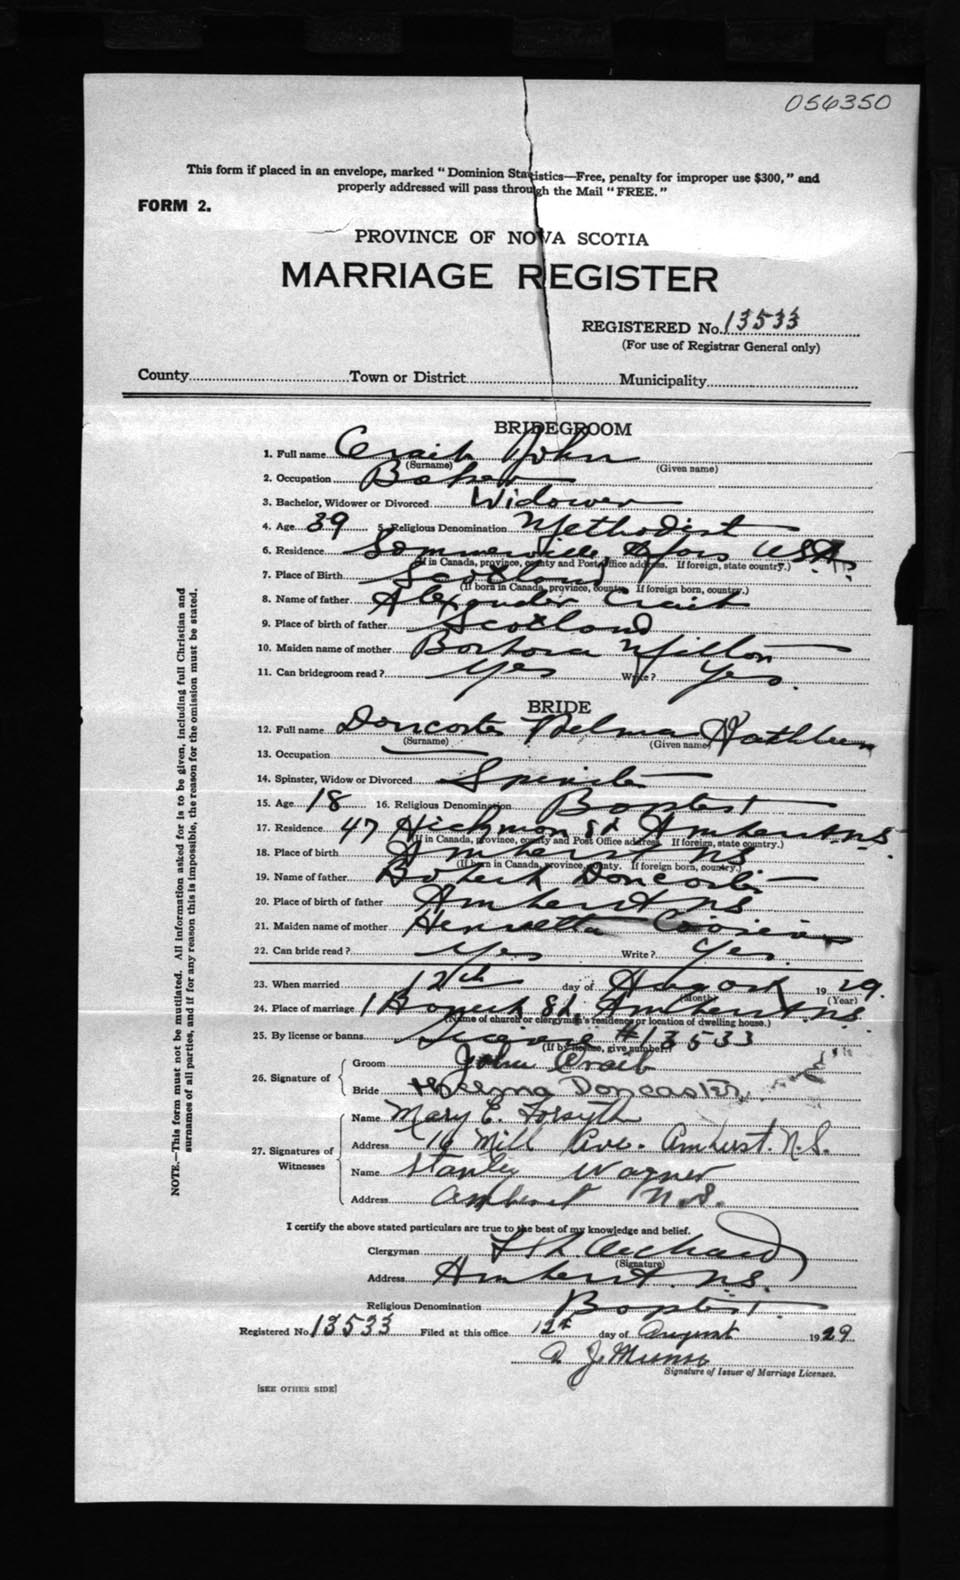 056350
This form if placed in an envelope, marked “Dominion Statistics—Free, penalty for improper use $300,” and
properly addressed will pass through the Mail “FREE.”
FORM 2.
PROVINCE OF NOVA SCOTIA
MARRIAGE REGISTER
REGISTERED No. 13533
(For use of Registrar General only)
County Town or District Municipality
BRIDEGROOM
1. Full name Craib John
(Surname) (Given name)
2. Occupation Baker
3. Bachelor, Widower or Divorced Widower
4. Age 39 5. Religious Denomination Methodist
6. Residence Sommerville, Mass USA.
(If in Canada, province, county and Post Office address. If foreign, state country.)
7. Place of Birth Scotland
(If born in Canada, province, county. If foreign born, country.)
8. Name of father Alexander Craib
9. Place of birth of father Scotland
10. Maiden name of mother Barbara
11. Can bridegroom read? Yes Write? Yes.
BRIDE
12. Full name Doncaster Kathleen
(Surname) (Given name)
13. Occupation
14. Spinster, Widow or Divorced Spinster
15. Age 18 16. Religious Denomination Baptist
17. Residence 47 Hickman St Amherst N.S.
(If in Canada, province, county and Post Office address. If foreign, state country.)
18. Place of birth Amherst NS
(If born in Canada, province, county. If foreign born, country.)
19. Name of father Robert Doncaster
20. Place of birth of father Amherst NS
21. Maiden name of mother Henrietta
22. Can bride read? Yes Write? Yes.
23. When married 12th day of August 1929.
(Month) (Year)
24. Place of marriage St, Amherst N.S.
(Name of church or clergyman's residence or location of dwelling house.)
25. By license or banns License #13533
(If by license, give number.)
26. Signature of Groom John Craib
Bride Doncaster
27. Signatures of Witnesses Name Mary E. Forsyth
Address 16 Mill Ave. Amherst. N.S.
Name Stanley Wagner
Address Amherst N.S.
NOTE.—This form must not be mutilated. All information asked for is to be given, including full Christian and
surnames of all parties, and if for any reason this is impossible, the reason for the omission must be stated.
I certify the above stated particulars are true to the best of my knowledge and belief.
Clergyman Orchard
(Signature)
Address Amherst. N.S.
Religious Denomination Baptist
Registered No. 13533 Filed at this office 12th day of August 1929
A. J. Munro
Signature of Issuer of Marriage Licenses.
[SEE OTHER SIDE]